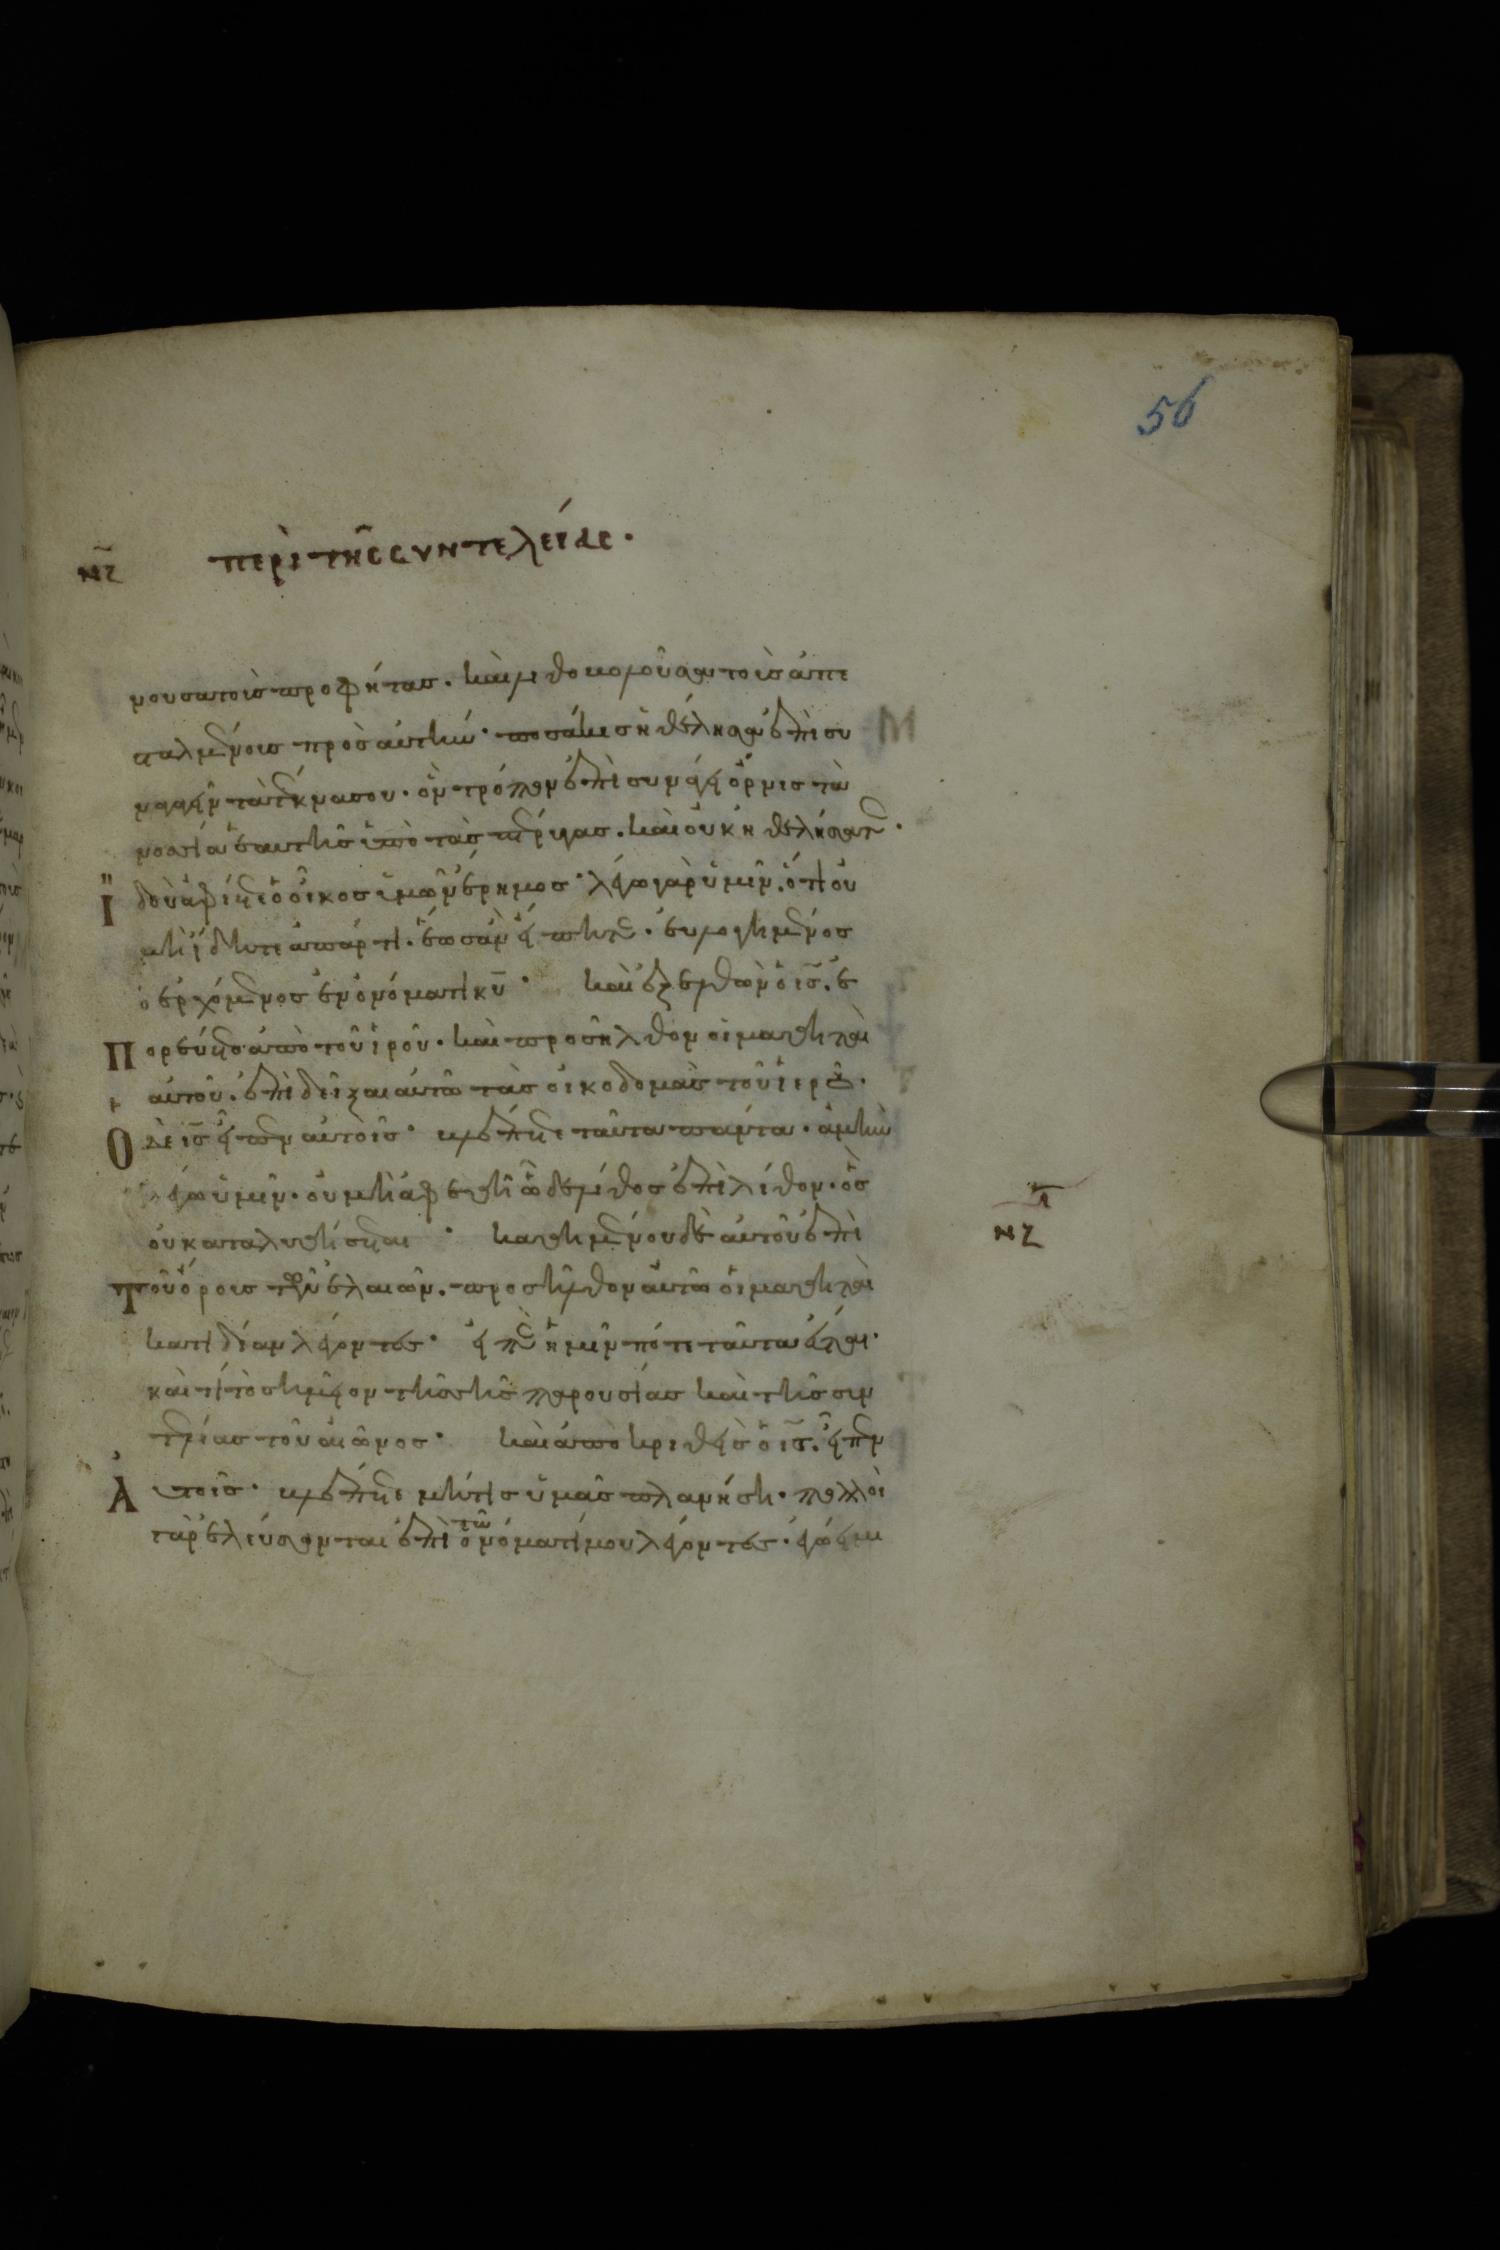 56
νζ περὶ τῆς συντελείας.
νουσα τοὺς προφήτας. καὶ λιθοβολοῦσα τοὺς ἀπε
σταλμένους πρὸς αὐτήν. ποσάκις ἠθέλησα ἐπισυ
ναγαγεῖν τὰ τέκνα σου. ὃν τρόπον ἐπισυνάγει ὄρνις τὰ
νοσσία ἑαυτῆς ὑπὸ τὰς πτέρυγας. καὶ οὐκ ἠθελήσατε.
Ϊδοὺ ἀφίεται ὁ οἶκος ὑμῶν ἔρημος. λέγω γὰρ ὑμῖν. ὅτι οὐ
μὴ ἴδητε ἀπάρτι. ἕως ἂν εἴπητε. εὐλογημένος
ὁ ἐρχόμενος ἐν ὀνόματι κ̅υ̅. καὶ ἐξελθὼν ὁ ι̅ς̅. ἐ
Πορεύετο ἀπὸ τοῦ ἱεροῦ. καὶ προσῆλθον οἱ μαθηταὶ
αὐτοῦ. ἐπιδεῖξαι αὐτῶ τὰς οἰκοδομὰς τοῦ ἱεροῦ.
Ὁ δὲ ι̅ς̅ εἶπεν αὐτοῖς. οὐ βλέπετε ταῦτα πάντα. ἀμὴν
λέγω ὑμῖν. οὐ μὴ ἀφεθῆ ὧδε λίθος ἐπὶ λίθον. ὃς
οὐ καταλυθήσεται. καθημένου δὲ αὐτοῦ ἐπὶ
Τοῦ ὄρους τῶν ἐλαιῶν. προσῆλθον αὐτῶ οἱ μαθηταὶ
κατιδίαν λέγοντες. εἰπὲ ἡμῖν πότε ταῦτα ἔσται.
καὶ τί τὸ σημεῖον τῆς σῆς παρουσίας καὶ τῆς συν
τελείας τοῦ αἰῶνος. καὶ ἀποκριθεὶς ὁ ι̅ς̅. εἶπεν
Ἀυτοῖς. βλέπετε μήτις ὑμᾶς πλανήση. πολλοὶ
γὰρ ἐλεύσονται ἐπὶ τῶ ὀνόματί μου λέγοντες. ἐγώ εἰμι
νζ